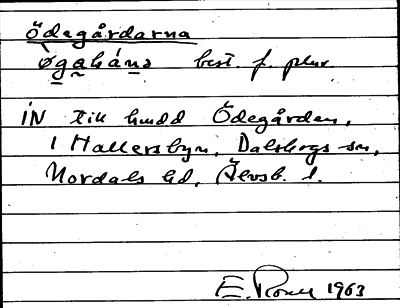 ödegårdarna
øgahána best. f. plur.
IN till hmdd Ödegården,
i Hallersbyn, Dalskogs sn,
Nordals hd, Älvsb. l.
E. 1963